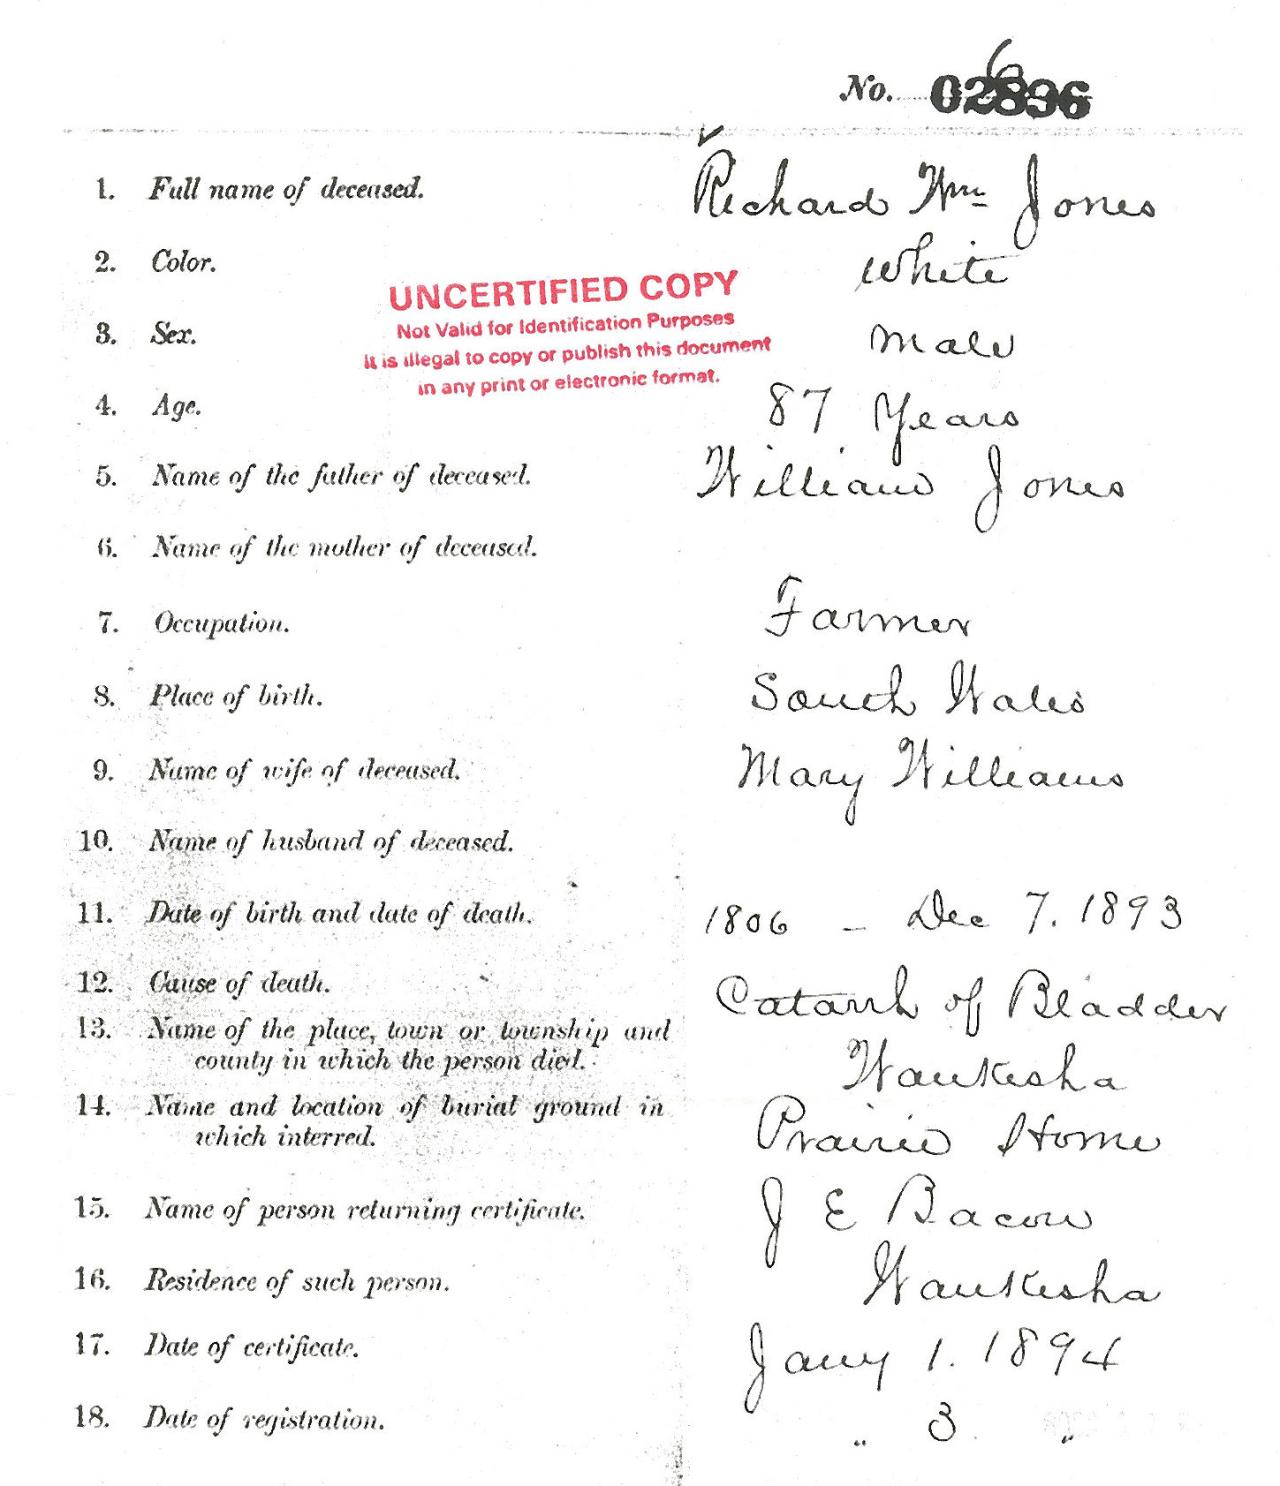 No. 02836
1. Full name of deceased. Richard Wm Jones
2. Color. white
UNCERTIFIED COPY
Not Valid for Identification Purposes
It is illegal to copy or publish this document
in any print or electronic format.
3. Sex. male
4. Age. 87 Years
5. Name of the father of deceased. William Jones
6. Name of the mother of deceased.
7. Occupation. Farmer
8. Place of birth. South Wales
9. Name of wife of deceased. Mary Williams
10. Name of husband of deceased.
11. Date of birth and date of death. 1806 – Dec 7. 1893
12. Cause of death. Catarrh of Bladder
13. Name of the place, town or township and
county in which the person died. Waukesha
14. Name and location of burial ground in
which interred. Prairie Home
15. Name of person returning certificate. J E Bacon
16. Residence of such person. Waukesha
17. Date of certificate. Jany 1. 1894
18. Date of registration. " 3 "